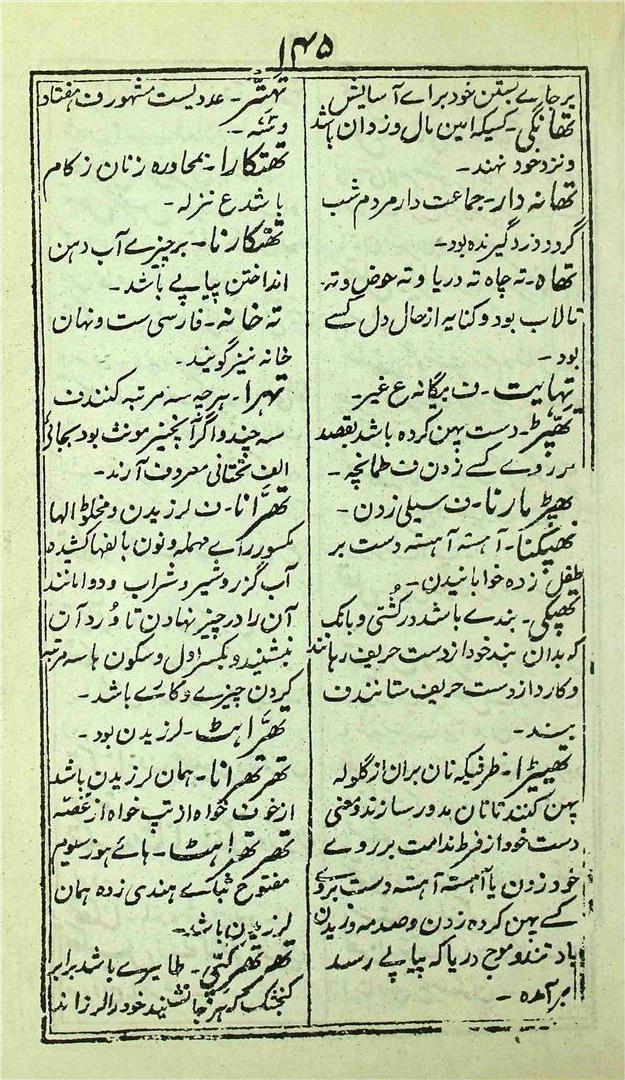 ۱۴۵
بر جاے بستن خود براے آسایش
تھانگی۔ کسیکہ امین مال وزدان باشد
و نزد خود نہند۔
تھانہ دار۔ جماعت دار مردم شب
گرد و دزد گیرندہ بود۔
تھاہ۔ تہ چاہ تہ دریا و تہ حوض و تہ
تالاب بود و کنایہ از حال دل کسے
بود۔
تہایت۔ ف بیگانہ ع غیر۔
تھپڑ۔ دست پہن کردہ باشد بقصد
بر روے کسے زدن ف طمانچہ۔
تھپڑ مارنا۔ ف سیلی زدن۔
تھپکنا۔ آہستہ آہستہ دست بر
طفل زدہ خوابانیدن۔
تھپکی۔ بندے باشد در کُشتی و بانک
کہ بدان بند خود از دست حریف رہانند
و کارد از دست حریف ستانند ف
بیند۔
تھپیڑا۔ ظرفیکہ نان بران از گلولہ
پہن کنند تا نان مدور سازند و معنی
دست خود از فرط ندامت بر روے
خود زدن یا آہستہ آہستہ دست بر روے
کسے پہن کردہ زدن و صدمہ وزیدن
باد تند و موج دریا کہ پیاپے رسد
برآمدہ۔
تہتّر۔ عددیست مشہور ف ہفتاد
و سہ۔
تھتکارا۔ بمحاورہ زنان زکام
باشد ع نزلہ۔
تھتکارنا۔ بر چیزے آب دہن
انداختن پیاپے باشد۔
تہ خانہ۔ فارسی ست و نہان
خانہ نیز گویند۔
تہرا۔ ہرچہ سہ مرتبہ کنند ف
سہ چند و اگر آنچیز مونث بود بجائے
الف تحتانی معروف آرند۔
تھرّانا۔ ف لرزیدن و مخلوط الہا
مکسور راے مہملہ و نون بالفہا کشیدہ
آب گزر و شیر و شراب و دوا مانند
آن را در چیز نہادن تا دُرد آن
نبشیند و بکسر اول و سکون ہا سہ مرتبہ
کردن چیزے و کارے باشد۔
تھرّاہٹ۔ لرزیدن بود۔
تھرتھرانا۔ ہمان لرزیدن باشد
از خوف خواہ از تپ خواہ از غصّہ
تھرتھراہٹ۔ ہاے ہوز سیوم
مفتوح بتاے ہندی زدہ ہمان
لرزیدن باشد۔
تھرتھرکنی۔ طایرے باشد برابر
کنجشک کہ ہر جا نشیند خود را لرزاند